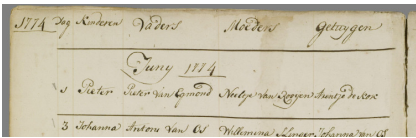 1774 Dag Kinderen Vaders Moeders Getuygen
Juny 1774
Pieter Pieter Van Egmond Neeltje van Rooyen de Kok
3 Johanna Antoni Van Os Willemina Johanna van Os